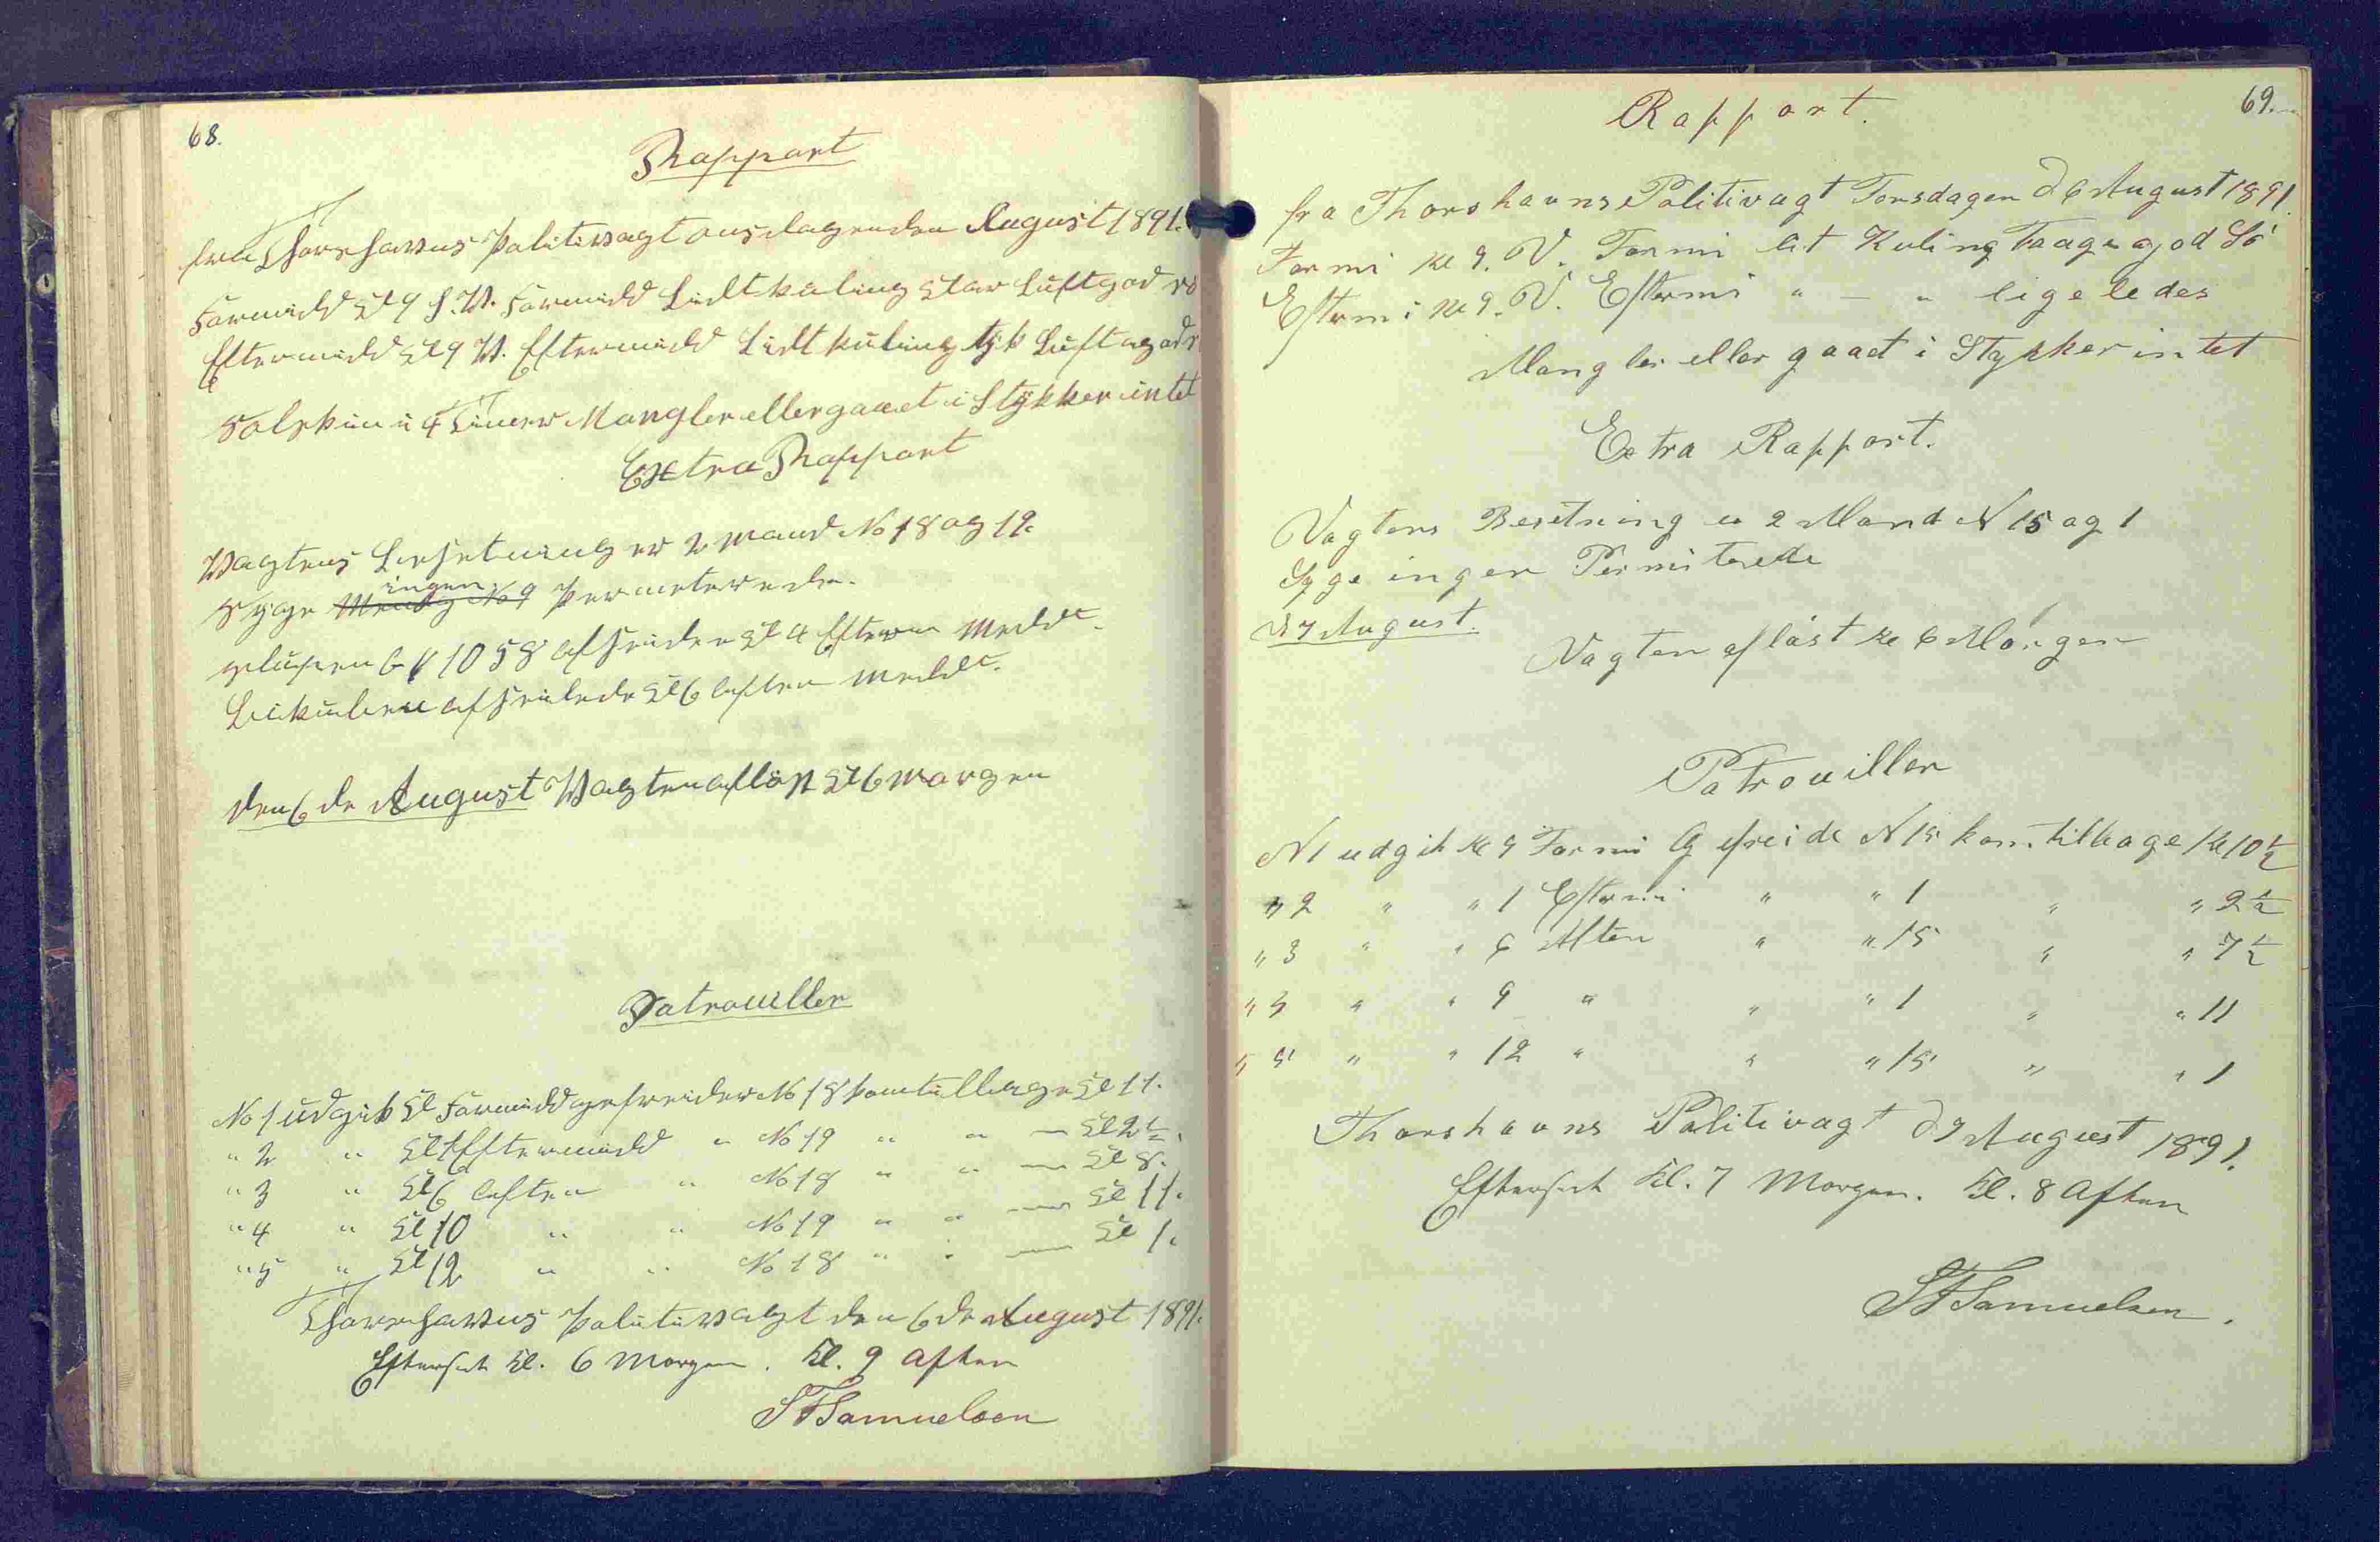 68.
Rapport
fra Thorshavns Politivagt Onsdagen den August 1891.
Formidd Kl 9 S.V. Formidd Lidt kuling Klar Luft god
Eftermidd Kl 9 V. Eftermidd Lidt kuling tyk Luft og
Solskin i 4 Timer Mangler eller gaaet i Stykker intet
Extra Rapport
Vagtens Besetning er 2 Mand No 18 og 19.
Syge ingen Permeterede.
Slupen 1058 afseidev Kl 4 Efterm Meddt.
afseilede Kl 6 aften Meddt.
den 6 de August Vagten aflöst Kl 6 Morgen
Patrouiller
No 1 udgik Kl Formidd gefreider No 18 kom tilbage Kl 11.
" 2 " Kl 1 Eftermidd " No 19 " " — Kl 2 ½.
" 3 " Kl 6 aften " No 18 " " — Kl 8.
" 4 " Kl 10 " " No 19 " " — Kl 11.
" 5 " Kl 12 " " No 18 " " — Kl 1.
Thorshavns Politivagt den 6 de August 1891.
Efterset Kl. 6 Morgen. Kl. 9 Aften
SFSamuelsen
69.
Rapport.
fra Thorshavns Politivagt Torsdagen D 6 August 1891.
Formi Kl 9. V. Formi lit Kuling Taage og god Sö
Eftermi Kl 9. V. Eftermi " — " ligeledes
Mangler eller gaaet i Stykker intet
Extra Rapport.
Vagtens Besetning er 2 Mand N 15 og 1
Syge ingen Permiterede
D 7 August.
Vagten aflöst Kl 6 Morgen
Patrouiller
N 1 udgik Kl 9 Formi Gefreide N 15 kom tilbage Kl 10 ½
" 2 " " 1 Eftermi " " 1 " " 2 ½
" 3 " " 6 Aften " " 15 " " 7 ½
" 3 " " 9 " " " 1 " " 11
" 5 " " 12 " " " 15 " " 1
Thorshavns Politivagt D 7 August 1891.
Efterset Kl. 7 Morgen. Kl. 8 Aften
SFSamuelsen.